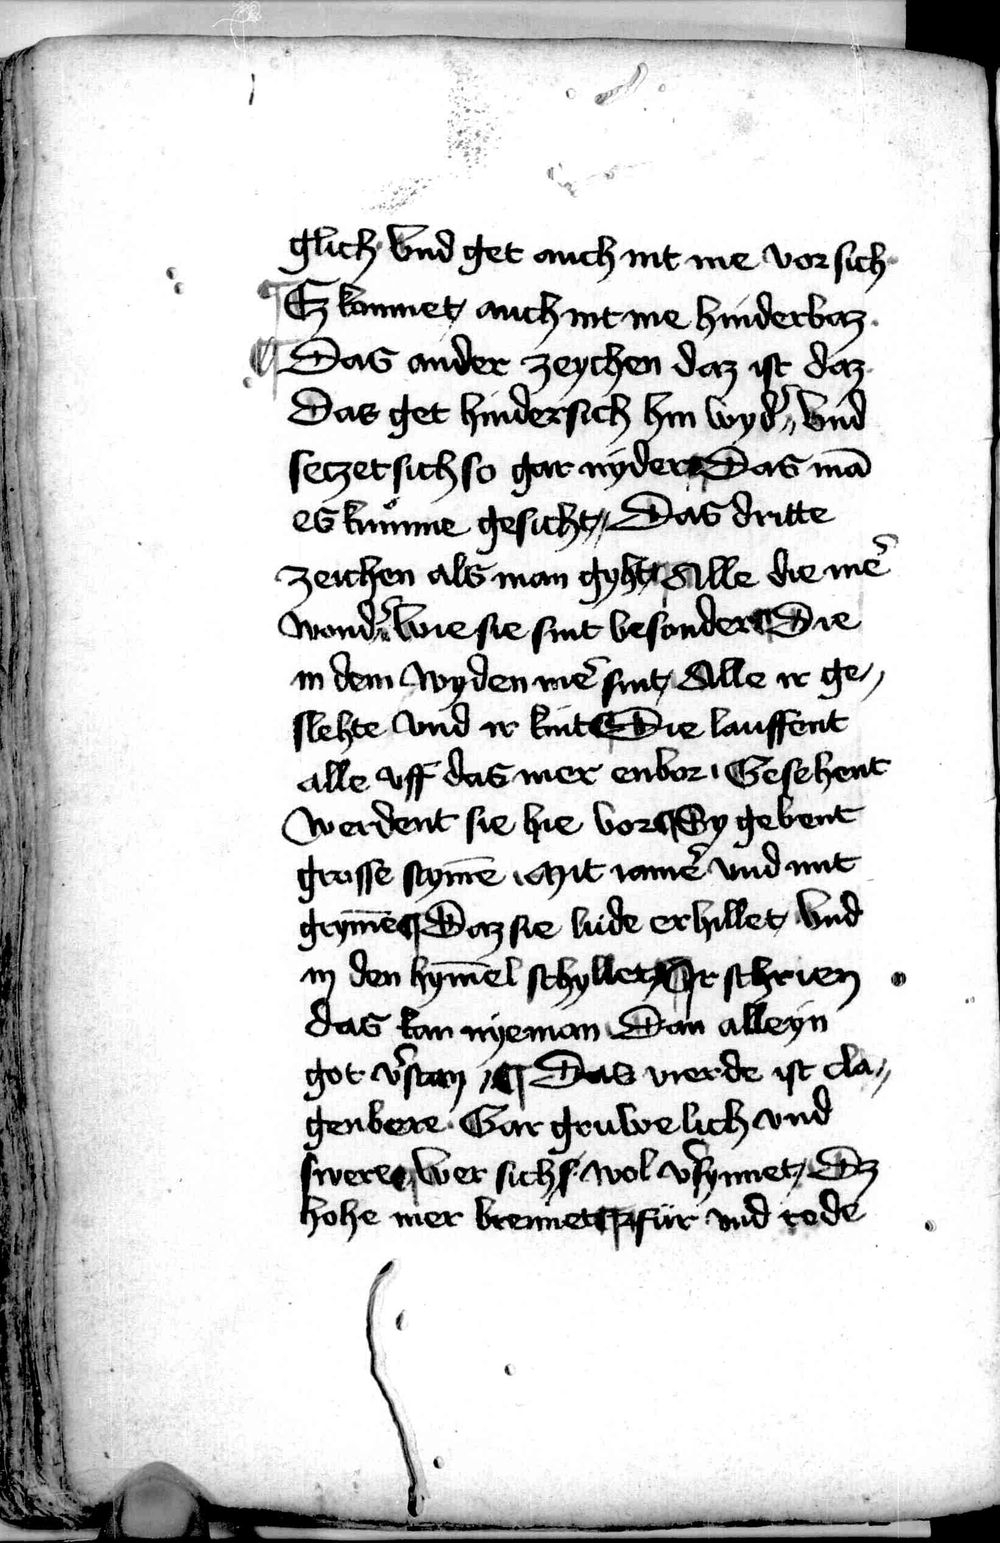 glich· vnd get auch nit me vor sich·
Ez kommet auch nit me hinderbaz·
¶ Das ander zeychen daz ist daz·
Das get hindersich hin wyd'' vnd
seczet sich so gar nyder ¶ Das mā
es kuͦmme gesicht'' Das dritte
zeichen als man gyht ¶ Alle die me͛
wond'' wie sie sint besonder ¶ Die
in dem wyden me͛ sint / Alle ir ge''
slehte vnd ir kint ¶ Die lauffent
alle vff das mer enbor · Gesehent
werdent sie hie vor ¶ Sy gebent
grosse stym̄e · Mit iame͛ vnd mit
grym̄e ¶ Daz sie lude erhillet / vnd
in den hym̄el schyllet / ¶ Ir schrien
das kan nyeman Dan alleyn
got v͛stan / ¶ Das vierde ist cla''
genbere · Gar gruwelich vnd
swere ¶ wer sichs wol v͛synnet / Dz
hohe mer brennet ¶ für vnd rode